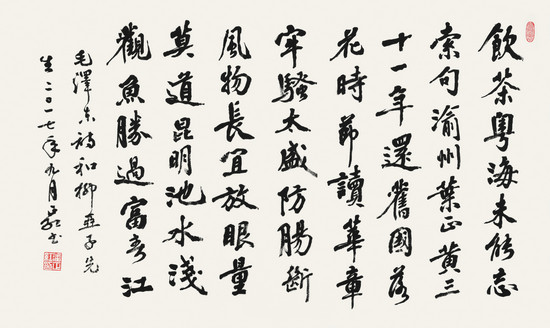 飲茶粵海未能忘
索句渝州葉正黃三
十一年還舊國落
花時節讀華章
牢騷太盛防腸斷
風物長宜放眼量
莫道昆明池水淺
觀魚勝過富春江
毛澤东詩和柳亞子先
生二〇一七年九月书